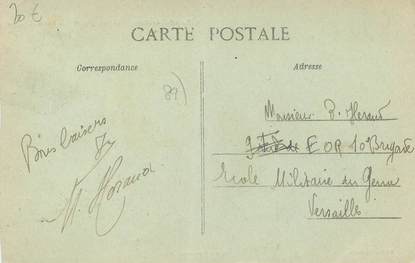 20 €
CARTE POSTALE
Correspondance
Adresse
89)
Bons baisers
Monsieur P. Heraud
EOR 10 Brigade
Ecole Militaire du Génie
Versailles